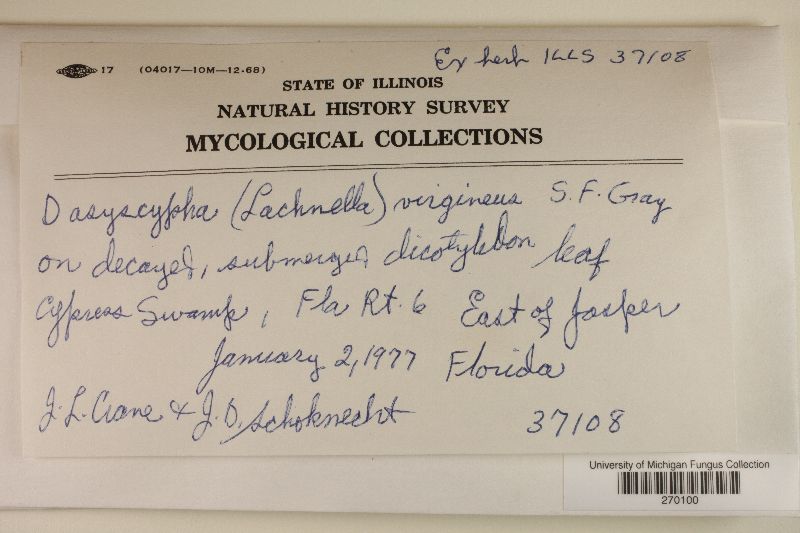 17 (04017—10M—12-68)
Ex herb ILLS 37108
STATE OF ILLINOIS
NATURAL HISTORY SURVEY
MYCOLOGICAL COLLECTIONS
Dasyscypha (Lachnella) virgineus S.F. Gray
on decayed, submerged dicotyledon leaf
Cypress Swamp, Fla Rt. 6 East of Jasper
January 2, 1977 Florida
J.L. Crane & J.D. Schoknecht 37108
University of Michigan Fungus Collection
270100